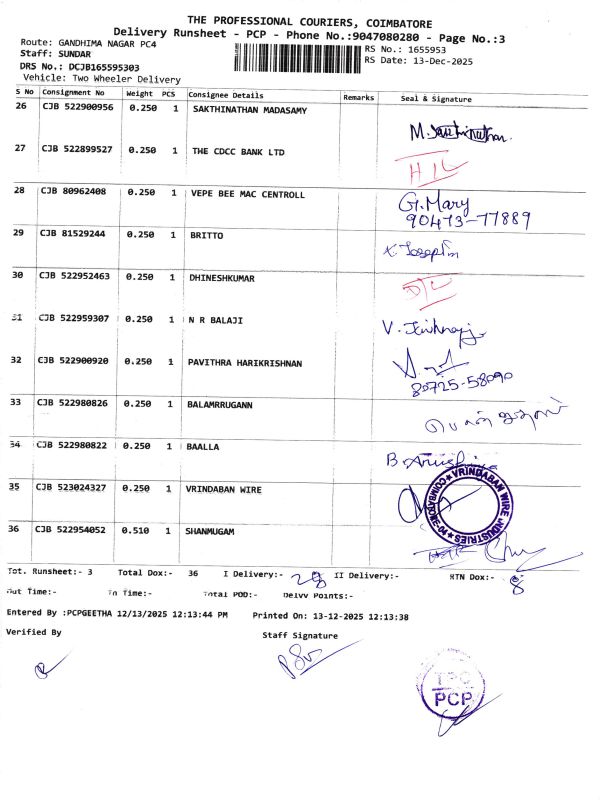 THE PROFESSIONAL COURIERS, COIMBATORE
Delivery Runsheet - PCP - Phone No.:9047080280 - Page No.:3
Route: GANDHIMA NAGAR PC4
RS No.: 1655953
Staff: SUNDAR
RS Date: 13-Dec-2025
DRS No.: DCJB165595303
Vehicle: Two Wheeler Delivery
S No Consignment No Weight PCS Consignee Details Remarks Seal & Signature
26 CJB 522900956 0.250 1 SAKTHINATHAN MADASAMY
M. Sakthinathan.
27 CJB 522899527 0.250 1 THE CDCC BANK LTD
28 CJB 80962408 0.250 1 VEPE BEE MAC CENTROLL G. Mary
90473-77889
29 CJB 81529244 0.250 1 BRITTO
30 CJB 522952463 0.250 1 DHINESHKUMAR
31 CJB 522959307 0.250 1 N R BALAJI
32 CJB 522900920 0.250 1 PAVITHRA HARIKRISHNAN
80725-58090
33 CJB 522980826 0.250 1 BALAMRRUGANN
34 CJB 522980822 0.250 1 BAALLA
35 CJB 523024327 0.250 1 VRINDABAN WIRE
VRINDABAN WIRE INDUSTRIES
36 CJB 522954052 0.510 1 SHANMUGAM
Tot. Runsheet:- 3 Total Dox:- 36 I Delivery:- 28 II Delivery:- RTN Dox:- 8
Out Time:- In Time:- Total POD:- Delvy Points:-
Entered By :PCPGEETHA 12/13/2025 12:13:44 PM Printed On: 13-12-2025 12:13:38
Verified By Staff Signature
TPC
PCP